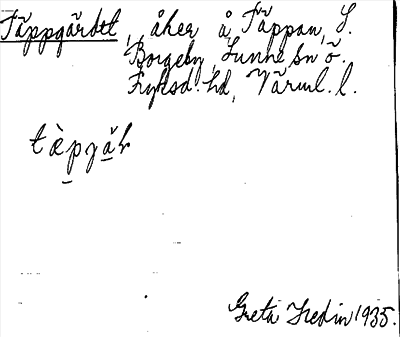 Täppgärdet, åker å Täppan, S.
Borgeby, Sunne sn ö.
Fryksd. hd, Värml. l.
tæ̀pjåɫ
Greta Hedin 1935.